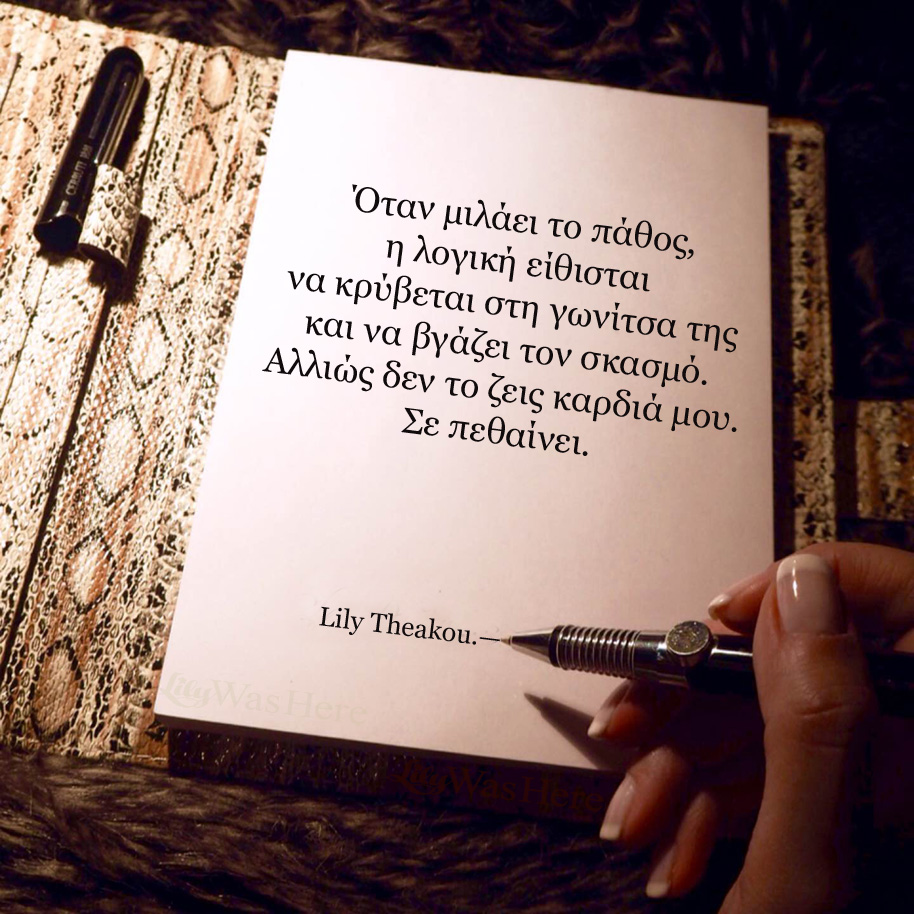 Όταν μιλάει το πάθος,
η λογική είθισται
να κρύβεται στη γωνίτσα της
και να βγάζει τον σκασμό.
Αλλιώς δεν το ζεις καρδιά μου.
Σε πεθαίνει.
Lily Theakou.—
LilyWasHere
LilyWasHere
CERRUTI 1881